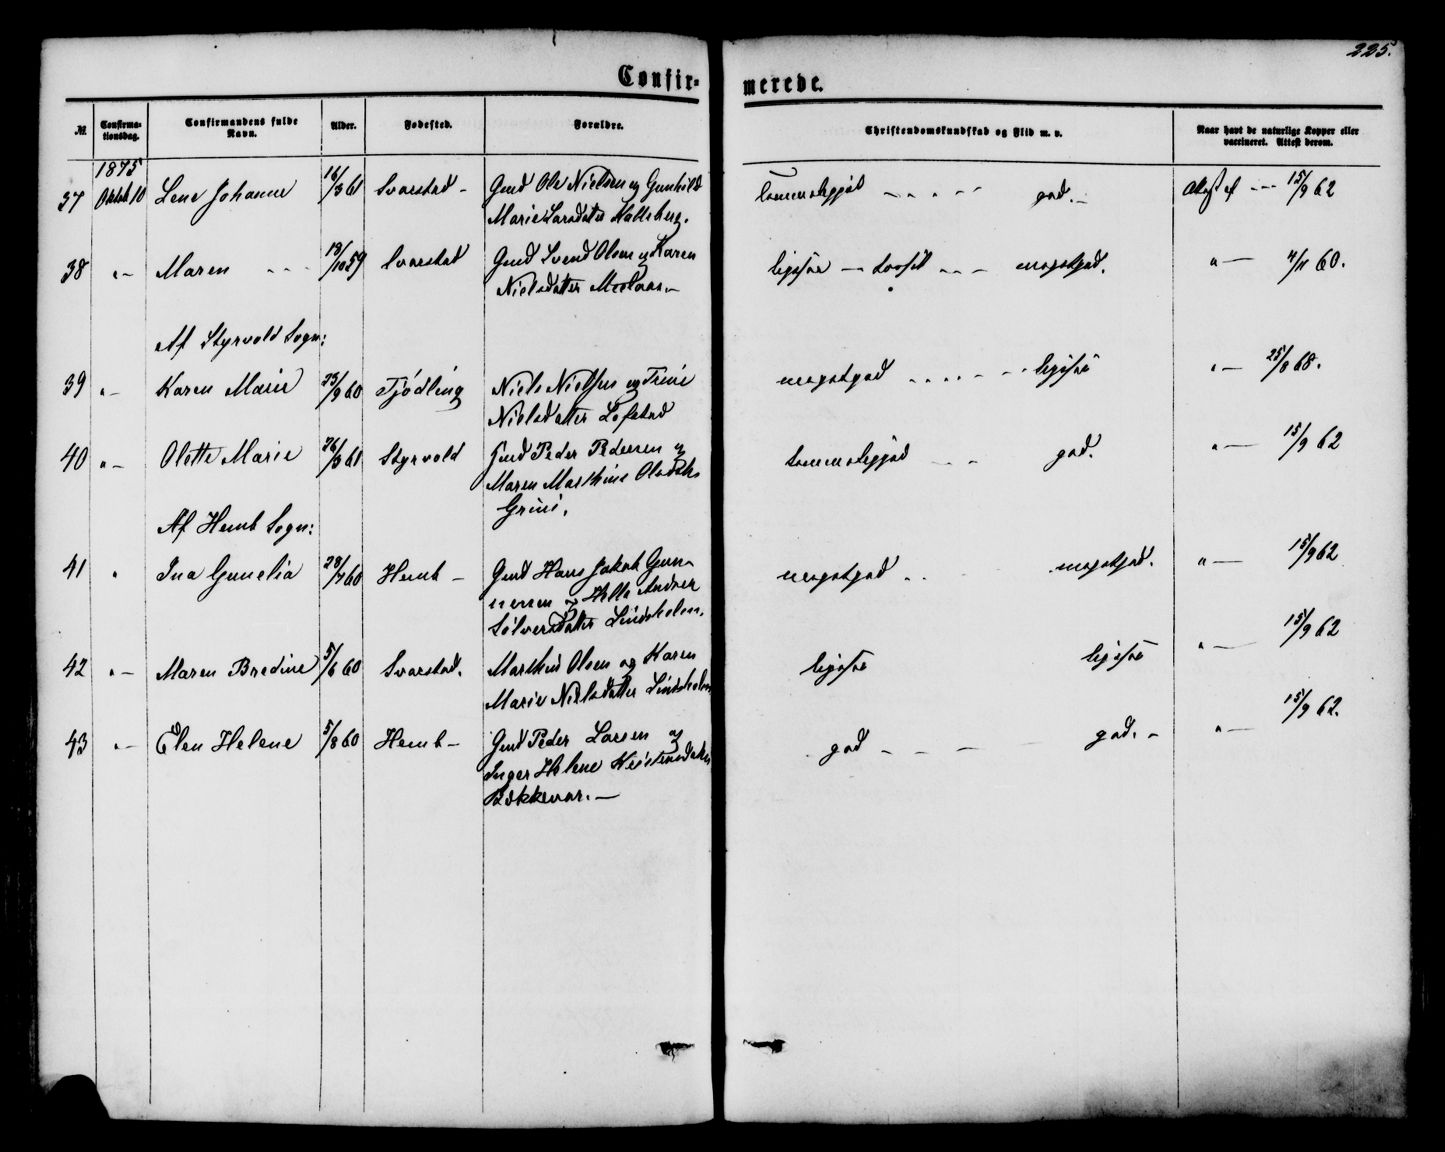 225.
Confir-
merede.
№
Confirma-
tionsdag.
Confirmandens fulde
Navn.
Alder.
Fødested.
Forældre.
Christendomskundskab og Flid m. v.
Naar havt de naturlige Kopper eller
vaccineret. Attest derom.
1875
37 Oktob 10 Lene Johanne 16/3 61 Svarstad - Gmd Ole Nielsen og Gunhild
Marie Larsdatter god. 15/9 62
38 " Maren 19/10 59 Svarstad Gmd Svend Olsen og Karen
Nielsdatter megetgod. " 4/11 60.
Af Styrvold Sogn:
39 " Karen Marie 25/9 60 Tjödling Niels Nielsen og Trine
Nielsdatter Lofstad megetgod " 25/8 68.
40 " Olette Marie 26/3 61 Styrvold Gmd Peder Pedersen og
Maren Marthine
Grini. god. " 15/9 62
Af Hemb Sogn:
41 " Ina Gunelia 28/7 60 Hemb - Gmd Hans Jakob Gun-
nersen og Helle
Sölversdatter Lindsholm. megetgod megetgod. " 15/9 62
42 " Maren Bredine 5/6 60 Svarstad. Marthin Olsen og Karen
Marie Nielsdatter Lindsholm " 15/9 62
43 " Elen Helene 5/8 60 Hemb - Gmd Peder Larsen og
Inger Helene
Bækkevar. - god god. - " 15/9 62.